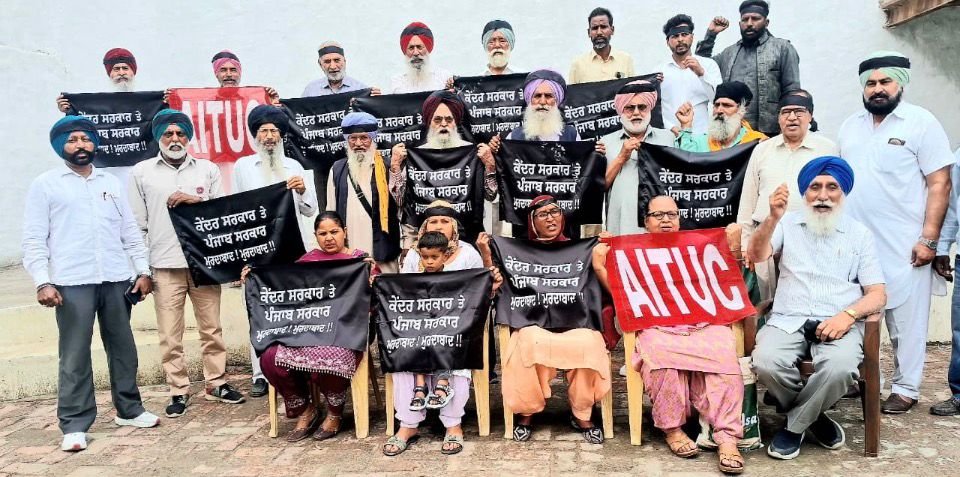 ਕੇਂਦਰ ਸਰਕਾਰ ਤੇ
ਪੰਜਾਬ ਸਰਕਾਰ
ਮੁਰਦਾਬਾਦ ! ਮੁਰਦਾਬਾਦ !!
AITUC
ਕੇਂਦਰ ਸਰਕਾਰ
ਪੰਜਾਬ ਸਰਕਾਰ
ਕੇਂਦਰ ਸਰਕਾਰ ਤੇ
ਪੰਜਾਬ ਸਰਕਾਰ
ਕੇਂਦਰ ਸਰਕਾਰ ਤੇ
ਪੰਜਾਬ ਸਰਕਾਰ
ਕੇਂਦਰ ਸਰਕਾਰ ਤੇ
ਪੰਜਾਬ ਸਰਕਾਰ
ਮੁਰਦਾਬਾਦ ! ਮੁਰਦਾਬਾਦ !!
ਕੇਂਦਰ ਸਰਕਾਰ ਤੇ
ਪੰਜਾਬ ਸਰਕਾਰ
ਮੁਰਦਾਬਾਦ ! ਮੁਰਦਾਬਾਦ !!
ਕੇਂਦਰ ਸਰਕਾਰ ਤੇ
ਪੰਜਾਬ ਸਰਕਾਰ
ਮੁਰਦਾਬਾਦ ! ਮੁਰਦਾਬਾਦ !!
ਕੇਂਦਰ ਸਰਕਾਰ ਤੇ
ਪੰਜਾਬ ਸਰਕਾਰ
ਮੁਰਦਾਬਾਦ ! ਮੁਰਦਾਬਾਦ !!
ਕੇਂਦਰ ਸਰਕਾਰ ਤੇ
ਪੰਜਾਬ ਸਰਕਾਰ
ਮੁਰਦਾਬਾਦ ! ਮੁਰਦਾਬਾਦ !!
ਕੇਂਦਰ ਸਰਕਾਰ ਤੇ
ਪੰਜਾਬ ਸਰਕਾਰ
ਮੁਰਦਾਬਾਦ ! ਮੁਰਦਾਬਾਦ !!
ਕੇਂਦਰ ਸਰਕਾਰ ਤੇ
ਪੰਜਾਬ ਸਰਕਾਰ
ਮੁਰਦਾਬਾਦ ! ਮੁਰਦਾਬਾਦ !!
AITUC